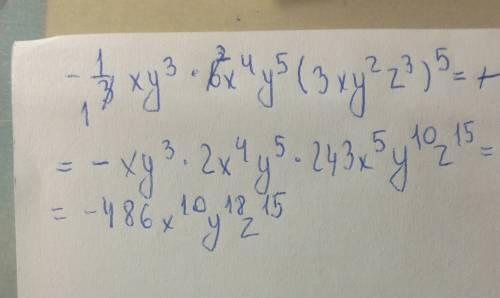 - 1/3 xy³ · 6x⁴y⁵(3xy²z³)⁵ =
= - xy³ · 2x⁴y⁵ · 243x⁵y¹⁰z¹⁵ =
= -486x¹⁰y¹⁸z¹⁵